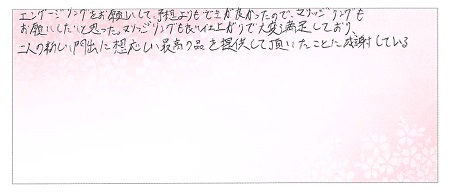 エンゲージリングをお願いして、予想よりもでき が良かったので、マリッジリングも
お願いしたいと思った。マリッジリングも良い仕上がりで大変満足しており、
二人の新しい門出に相応しい最高の品を提供して頂いたことに感謝している